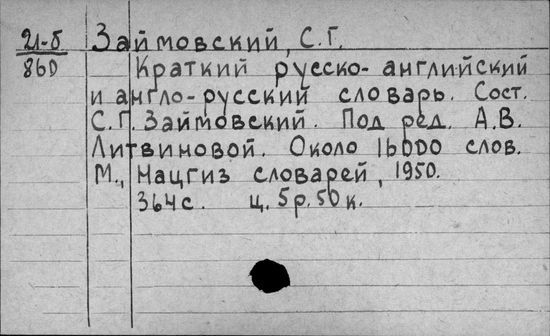 21-б Займовский, С.Г.
860 Краткий русско-английский
и англо-русский словарь. Сост.
С.Г. Займовский. Под ред. А.В.
Литвиновой. Около 16000 слов.
М., Нацгиз словарей, 1950.
364с. ц. 5р.50к.